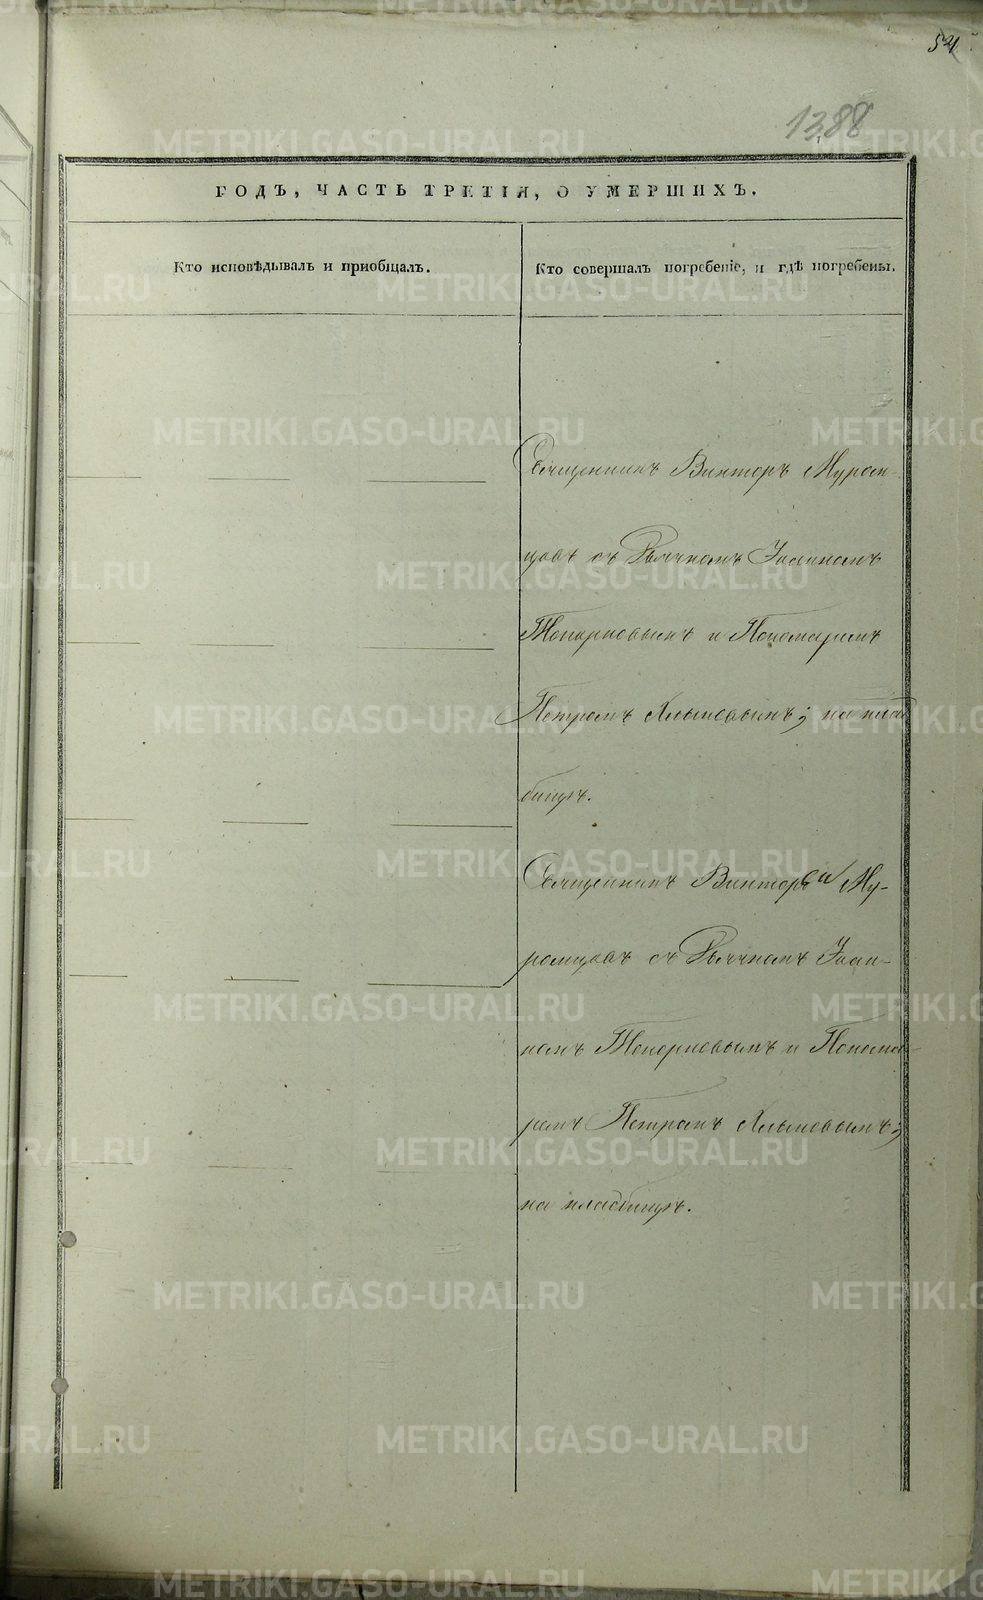 54
1388
ГОДЪ, ЧАСТЬ ТРЕТІЯ, О УМЕРШИХЪ.
Кто исповѣдывалъ и пріобщалъ.
Кто совершалъ погребеніе, и гдѣ погребены.
Священникъ Викторъ Муром-
цовъ съ Дьячкомъ Іоанномъ
Топорковымъ и Пономаремъ
Петромъ Хлыновымъ; на клад
бищѣ.
Священникъ Викторъ Му-
ромцовъ съ Дьячкомъ Іоан-
номъ Топорковымъ и Понома-
ремъ Петромъ Хлыновымъ;
на кладбищѣ.
METRIKI.GASO-URAL.RU